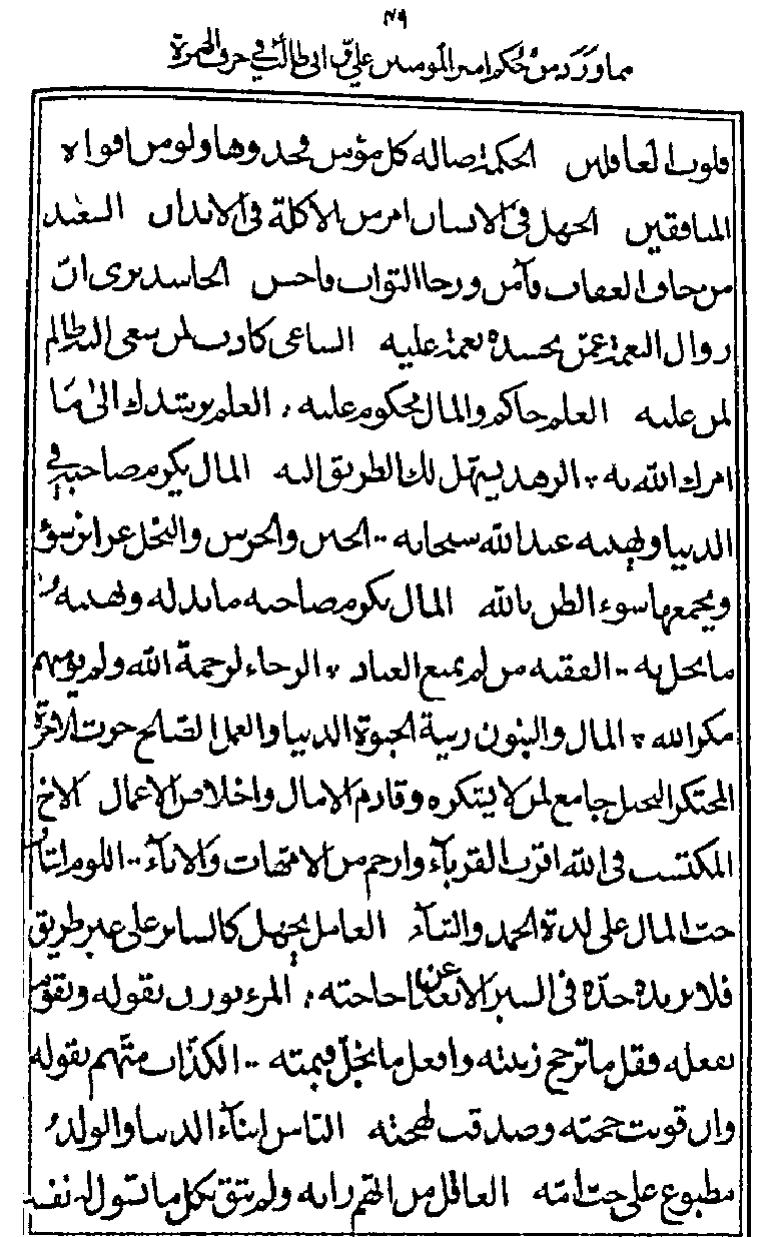 ٤٩
مما ورد من حكم امير المومنين علي بن ابي طالب في حرف الهمزة
قلوب الغافلين الحكمة ضالة كل مؤمن فخذوها ولو من افواه
المنافقين الجهل في الانسان اضر من الاكلة في الابدان السعيد
من خاف العقاب فآمن ورجا الثواب فاحسن الحاسد يرى انّ
زوال النعمة عمّن يحسده نعمة عليه الساعي كاذب لمن سعى اليه ظالم
لمن عليه العلم حاكم والمال محكوم عليه العلم يرشدك الى ما
امرك الله به الزهد يسهّل لك الطريق اليه المال يكرم صاحبه في
الدنيا ويهينه عند الله سبحانه الجبن والحرص والبخل غرائز سوء
ويجمعها سوء الظن بالله المال يكرم صاحبه ما بذله ويهينه
ما بخل به الفقيه من لم يمنع العباد الرجاء لرحمة الله ولم يؤمنهم
مكر الله المال والبنون زينة الحيوة الدنيا والعمل الصّالح حرث الاخرة
المحتكر البخيل جامع لمن لا يشكره وقادم الامال واخلاص الاعمال الاخ
المكتسب في الله اقرب القرباء وارحم من الامّهات والاباء اللوم ايثار
حبّ المال على لذة الحمد والثناء العامل بجهل كالساير على غير طريق
فلا يزيده جدّه في السير الا بعدا عن حاجته المرء يوزن بقوله ويقوّم
بفعله فقل ما ترجح زنته وافعل ما تجلّ قيمته الكذّاب متّهم بقوله
وان قويت حجته وصدقت لهجته الناس ابناء الدنيا والولد
مطبوع على حبّ امّه العاقل من اتّهم رايه ولم يثق بكل ما تسول له نفسه